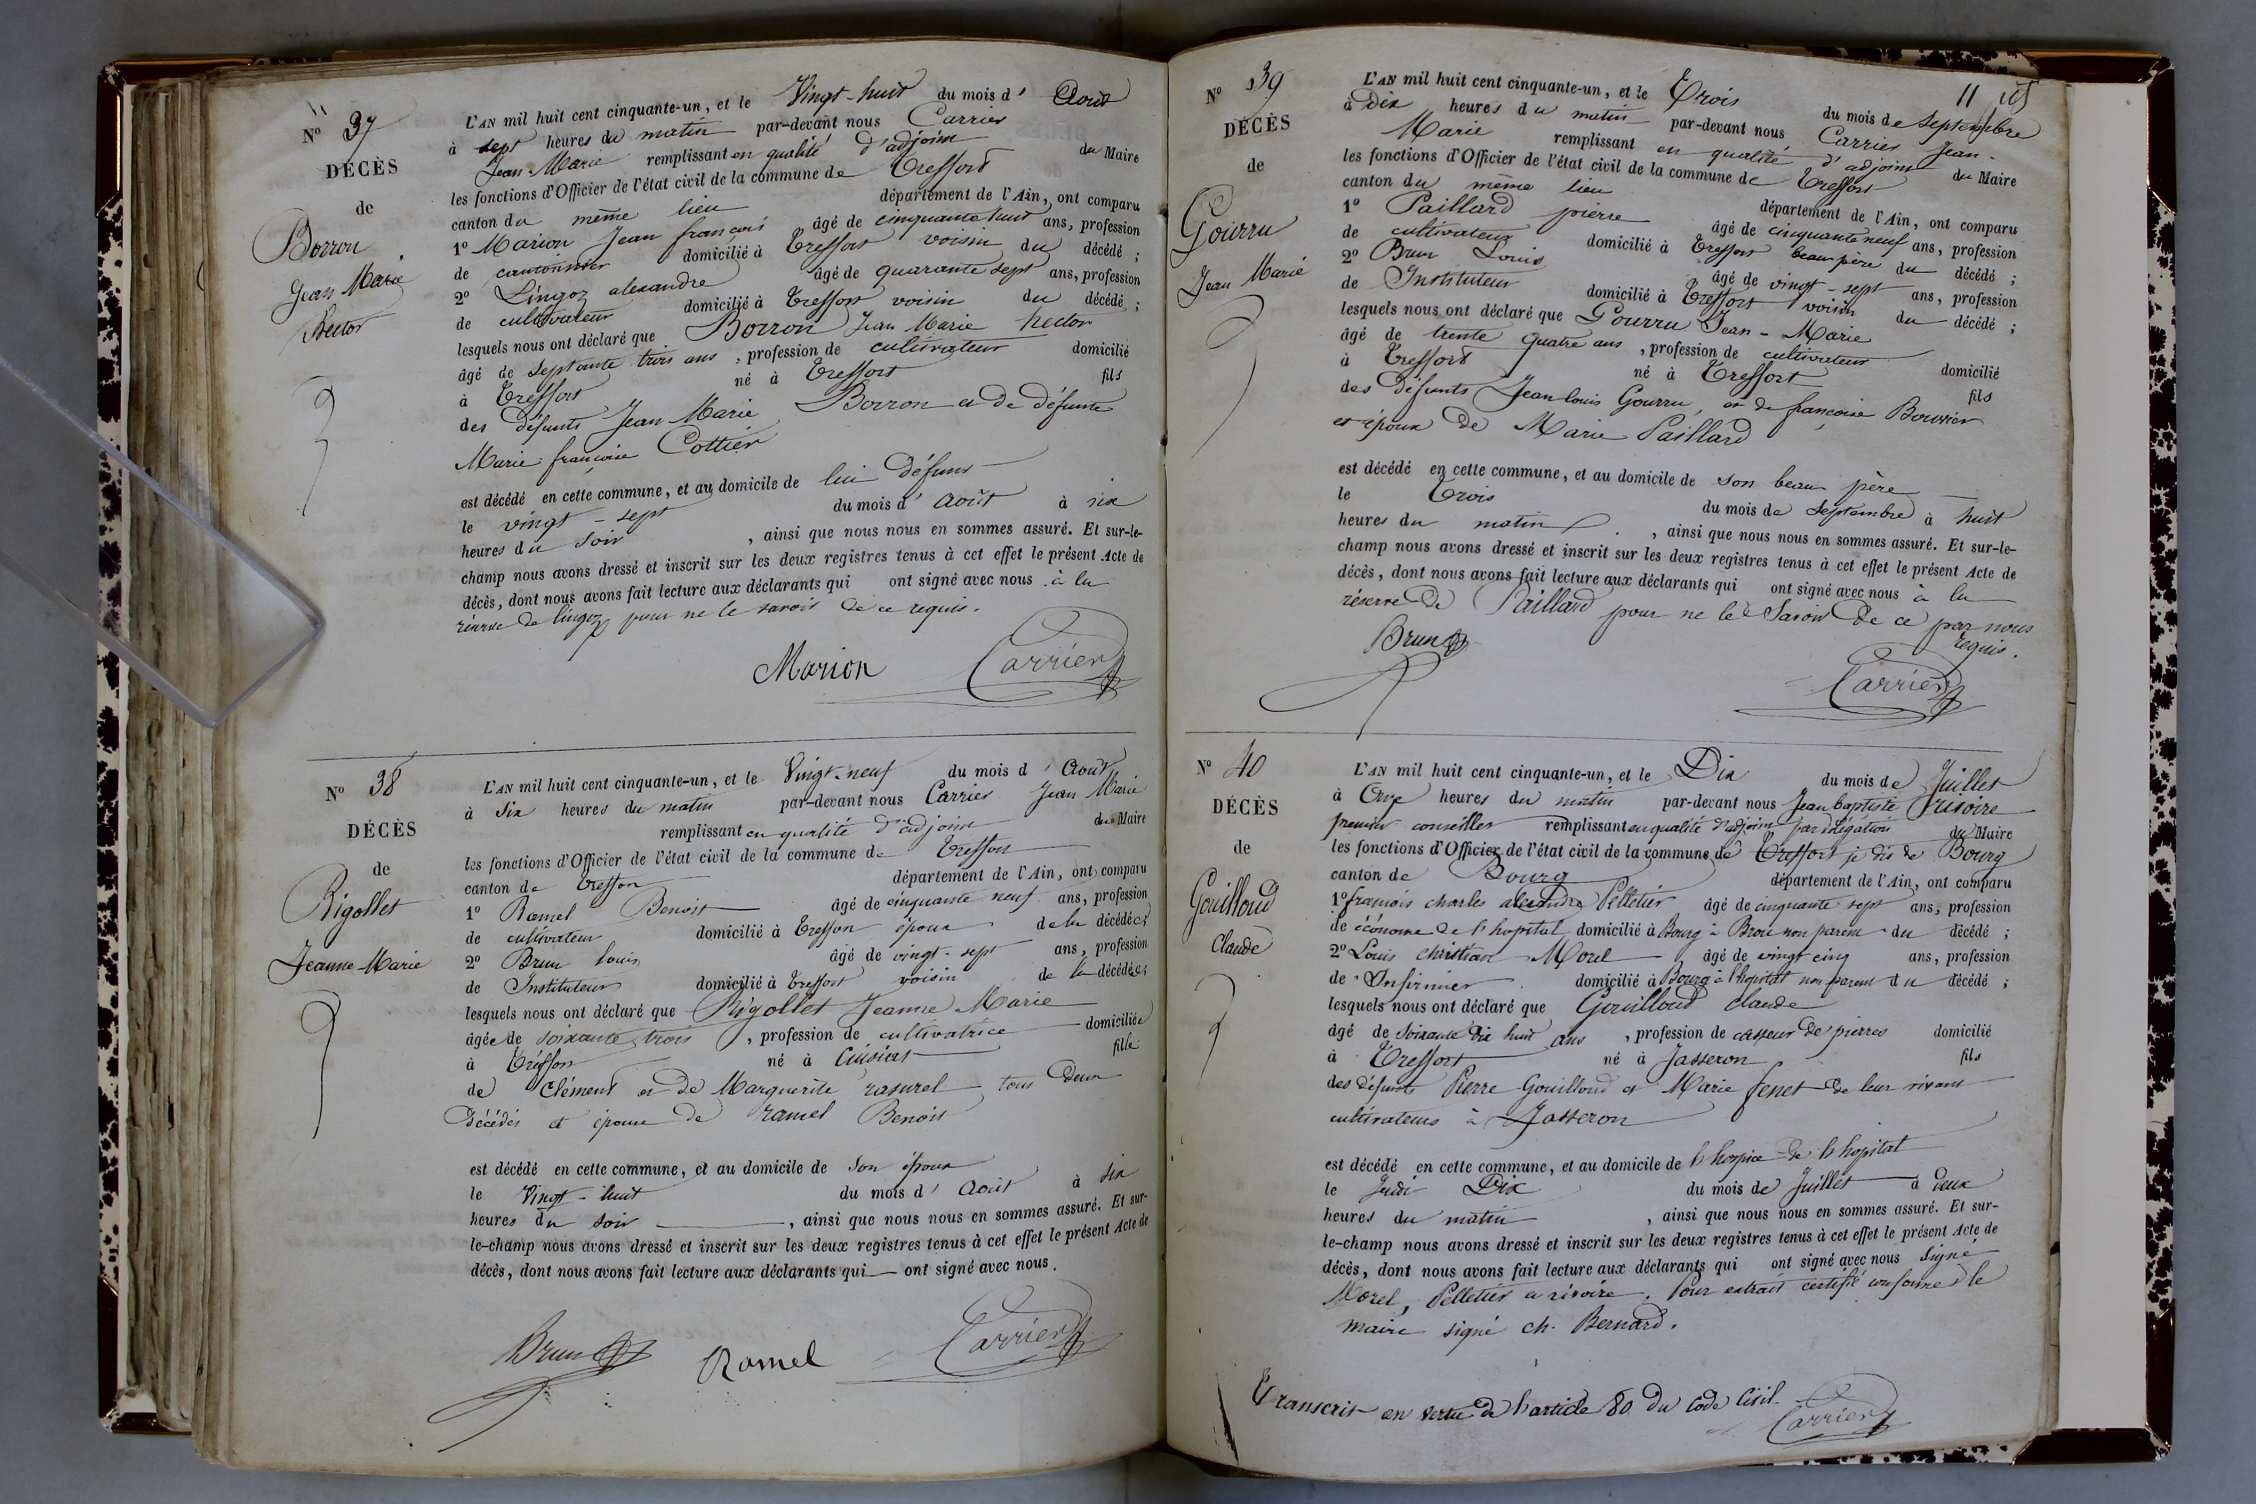 N° 37
DÉCÈS
de
Borron
Jean Marie
hector
L'AN mil huit cent cinquante-un, et le Vingt-huit du mois d' Août
à sept heures du matin par-devant nous Carrier
Jean-Marie remplissant en qualité d'adjoint du Maire
les fonctions d'Officier de l'état civil de la commune de Treffort
canton du même lieu département de l'Ain, ont comparu
1° Marion Jean françois âgé de cinquante huit ans, profession
de cantonnier domicilié à Treffort voisin du décédé ;
2° Lingoz alexandre âgé de quarante sept ans, profession
de cultivateur domicilié à Treffort voisin du décédé ;
lesquels nous ont déclaré que Borron Jean Marie hector
âgé de septante trois ans, profession de cultivateur domicilié
à Treffort né à Treffort fils
des défunts Jean Marie Borron et de défunte
Marie françoise Cottier
est décédé en cette commune, et au domicile de lui défunt
le vingt-sept du mois d' août à six
heures du soir, ainsi que nous nous en sommes assuré. Et sur-le-
champ nous avons dressé et inscrit sur les deux registres tenus à cet effet le présent Acte de
décès, dont nous avons fait lecture aux déclarants qui ont signé avec nous à la
réserve de lingoz pour ne le savoir de ce requis.
Marion Carrier
N° 38
DÉCÈS
de
Rigollet
Jeanne-Marie
L'AN mil huit cent cinquante-un, et le Vingt-neuf du mois d' Août
à six heures du matin par-devant nous Carrier Jean Marie
remplissant en qualité d'adjoint du Maire
les fonctions d'Officier de l'état civil de la commune de Treffort
canton de Treffort département de l'Ain, ont comparu
1° Ramel Benoit âgé de cinquante neuf ans, profession
de cultivateur domicilié à Treffort époux de la décédée ;
2° Brun louis âgé de vingt-sept ans, profession
de Instituteur domicilié à Treffort voisin de la décédée ;
lesquels nous ont déclaré que Rigollet Jeanne Marie
âgée de soixante trois, profession de cultivatrice domiciliée
à Treffort né à Cuisiat fille
de Clément et de Marguerite rasurel tous deux
décédés et épouse de ramel Benoit
est décédé en cette commune, et au domicile de son époux
le Vingt-huit du mois d' Août à six
heures du soir, ainsi que nous nous en sommes assuré. Et sur-
le-champ nous avons dressé et inscrit sur les deux registres tenus à cet effet le présent Acte de
décès, dont nous avons fait lecture aux déclarants qui ont signé avec nous.
Brun Ramel Carrier
N° 39
DÉCÈS
de
Gourru
Jean Marie
L'AN mil huit cent cinquante-un, et le Trois du mois de septembre
à Dix heures du matin par-devant nous Carrier Jean-
Marie remplissant en qualité d'adjoint du Maire
les fonctions d'Officier de l'état civil de la commune de Treffort
canton du même lieu département de l'Ain, ont comparu
1° Paillard pierre âgé de cinquante neuf ans, profession
de cultivateur domicilié à Treffort beau-père du décédé ;
2° Brun Louis âgé de vingt-sept ans, profession
de Instituteur domicilié à Treffort voisin du décédé ;
lesquels nous ont déclaré que Gourru Jean-Marie
âgé de trente quatre ans, profession de cultivateur
à Treffort né à Treffort domicilié
des défunts Jean louis Gourru, et de françoise Bouvier fils
et époux de Marie Paillard
est décédé en cette commune, et au domicile de son beau père
le Trois du mois de Septembre à huit
heures du matin, ainsi que nous nous en sommes assuré. Et sur-le-
champ nous avons dressé et inscrit sur les deux registres tenus à cet effet le présent Acte de
décès, dont nous avons fait lecture aux déclarants qui ont signé avec nous à la
réserve de Paillard pour ne le savoir de ce par nous
requis.
Brun
Carrier
N° 40
DÉCÈS
de
Gouilloud
Claude
L'AN mil huit cent cinquante-un, et le Dix du mois de Juillet
à Onze heures du matin par-devant nous Jean baptiste
premier conseiller remplissant en qualité d'adjoint par délégation du Maire
les fonctions d'Officier de l'état civil de la commune de Treffort je dis de Bourg
canton de Bourg département de l'Ain, ont comparu
1° françois charles alexandre Pelletier âgé de cinquante sept ans, profession
de économe de l'hopital domicilié à Bourg à Brou non parent du décédé ;
2° Louis christian Morel âgé de vingt cinq ans, profession
de Infirmier domicilié à Bourg à l'hopital non parent du décédé ;
lesquels nous ont déclaré que Gouilloud claude
âgé de soixante Dix huit ans, profession de casseur de pierres domicilié
à Treffort né à Jasseron fils
des défunts Pierre Gouilloud et Marie fenet de leur vivant
cultivateurs à Jasseron
est décédé en cette commune, et au domicile de l'hospice de l'hopital
le Jeudi Dix du mois de Juillet à deux
heures du matin, ainsi que nous nous en sommes assuré. Et sur-
le-champ nous avons dressé et inscrit sur les deux registres tenus à cet effet le présent Acte de
décès, dont nous avons fait lecture aux déclarants qui ont signé avec nous signé
Morel, Pelletier et . Pour extrait certifié conforme le
maire signé ch. Bernard.
Transcrit en vertu de l'article 80 du Code Civil.
Carrier